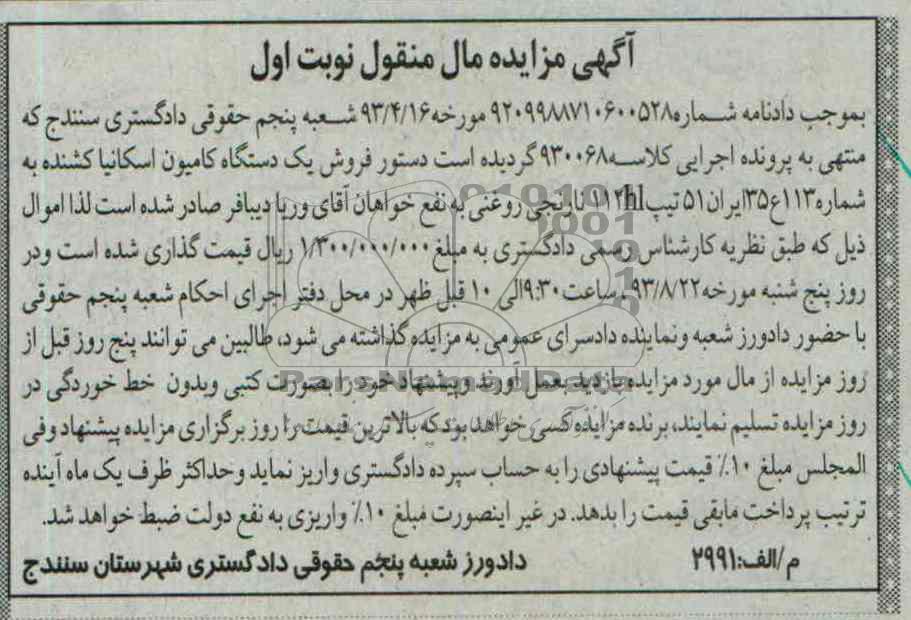 آگهی مزایده مال منقول نوبت اول
بموجب دادنامه شماره۹۲۰۹۹۸۸۷۱۰۶۰۰۵۲۸ مورخه۹۳/۴/۱۶ شعبه پنجم حقوقی دادگستری سنندج که
منتهی به پرونده اجرایی کلاسه۹۳۰۰۶۸ گردیده است دستور فروش یک دستگاه کامیون اسکانیا کشنده به
شماره۱۱۳ع۳۵ایران۵۱ تیپ۱۱۲hl نارنجی روغنی به نفع خواهان آقای وریا دیبافر صادر شده است لذا اموال
ذیل که طبق نظریه کارشناس رسمی دادگستری به مبلغ ۱/۳۰۰/۰۰۰/۰۰۰ ریال قیمت گذاری شده است ودر
روز پنج شنبه مورخه۹۳/۸/۲۲ ساعت۹:۳۰الی ۱۰ قبل ظهر در محل دفتر اجرای احکام شعبه پنجم حقوقی
با حضور دادورز شعبه ونماینده دادسرای عمومی به مزایده گذاشته می شود، طالبین می توانند پنج روز قبل از
روز مزایده از مال مورد مزایده بازدید بعمل آورند وپیشنهاد خود را بصورت کتبی وبدون خط خوردگی در
روز مزایده تسلیم نمایند، برنده مزایده کسی خواهد بود که بالاترین قیمت را روز برگزاری مزایده پیشنهاد وفی
المجلس مبلغ ۱۰٪ قیمت پیشنهادی را به حساب سپرده دادگستری واریز نماید وحداکثر ظرف یک ماه آینده
ترتیب پرداخت مابقی قیمت را بدهد. در غیر اینصورت مبلغ ۱۰٪ واریزی به نفع دولت ضبط خواهد شد.
م/الف:۲۹۹۱ دادورز شعبه پنجم حقوقی دادگستری شهرستان سنندج
ParsNamadData